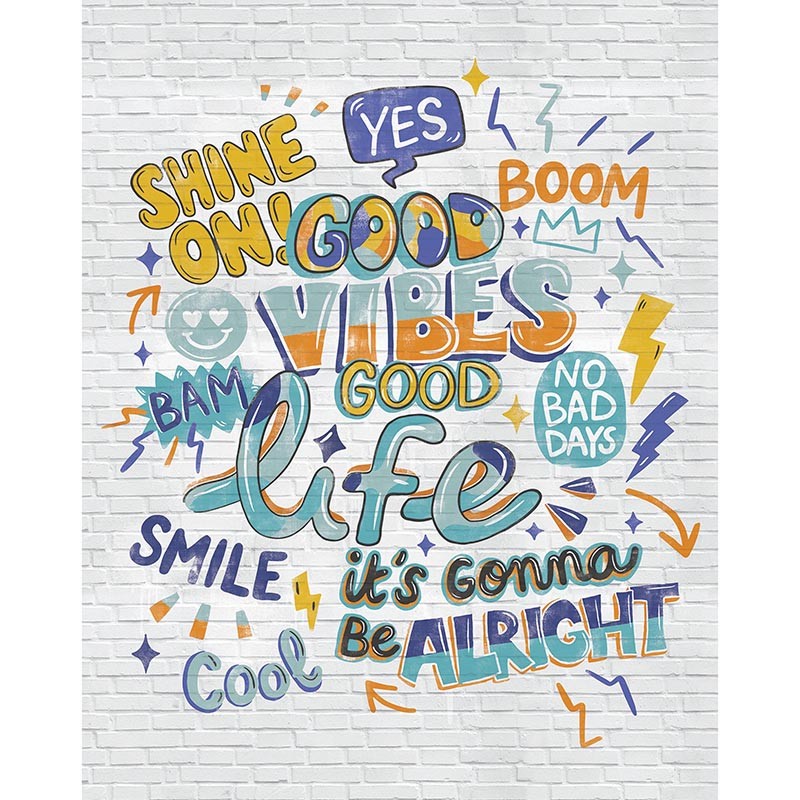 YES
SHINE
ON!
BOOM
GOOD
VIBES
GOOD
life
BAM
NO
BAD
DAYS
SMILE
it's Gonna
Be ALRIGHT
Cool